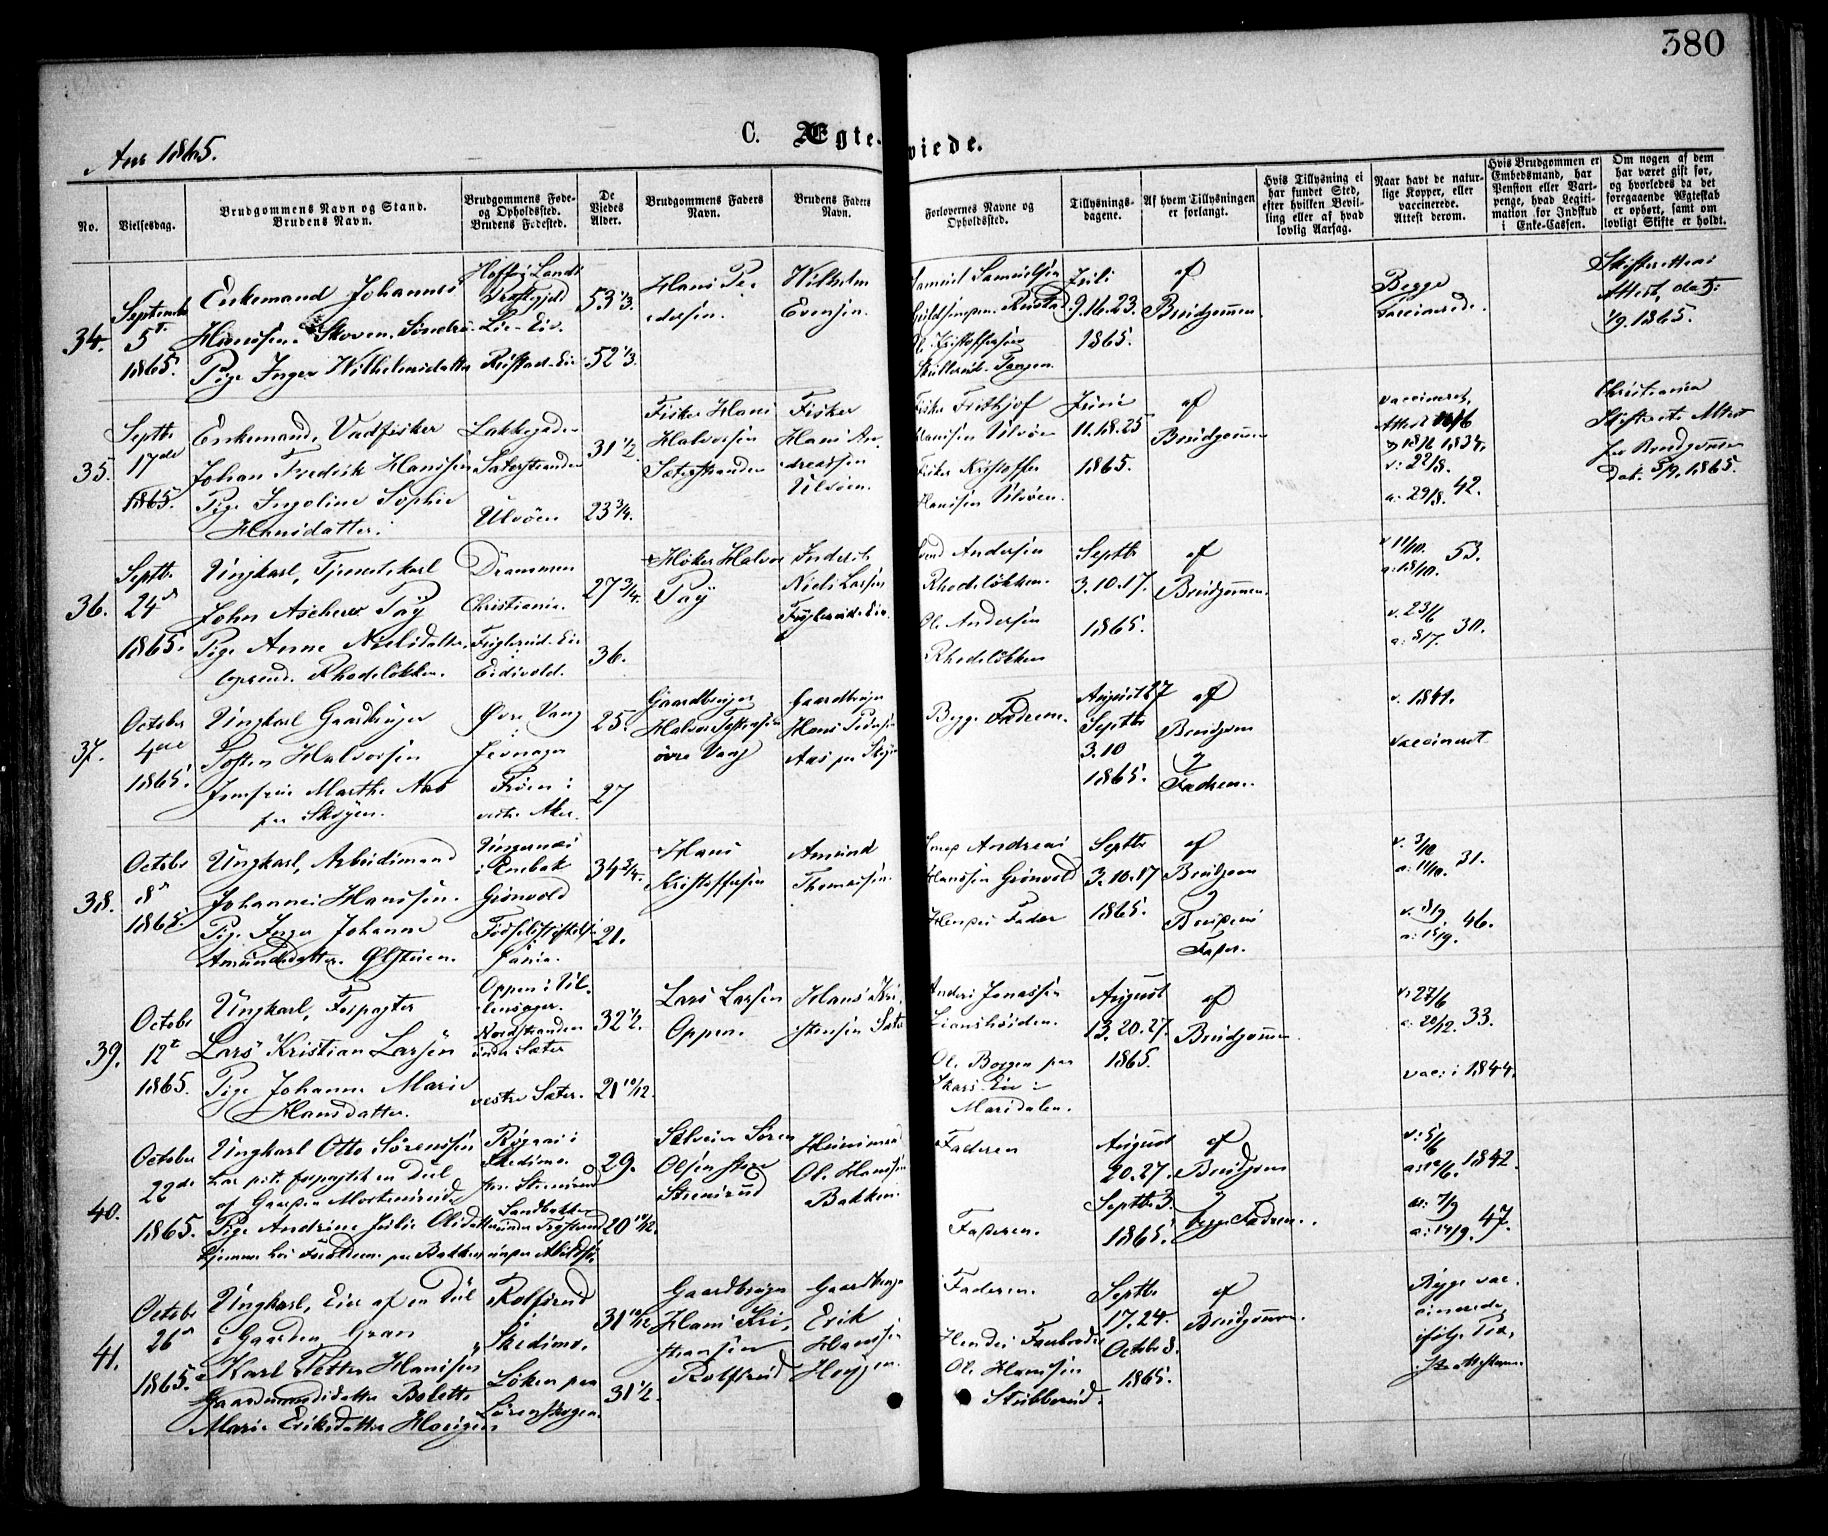 380
Aar 1865.
C. Ægteviede.
No.
Vielsesdag.
Brudgommens Navn og Stand.
Brudens Navn.
Brudgommens Føde-
og Opholdssted.
Brudens Fødested.
De
Viedes
Alder.
Brudgommens Faders
Navn.
Brudens Faders
Navn.
Forlovernes Navne og
Opholdssted.
Tillysnings-
dagene.
Af hvem Tillysningen
er forlangt.
Hvis Tillysning ei
har fundet Sted,
efter hvilken Bevil-
ling eller af hvad
lovlig Aarsag.
Naar havt de natur-
lige Kopper, eller
vaccinerede.
Attest derom.
Hvis Brudgommen er
Embedsmand, har
Pension eller Vart-
penge, hvad Legiti-
mation for Indskud
i Enke-Cassen.
Om nogen af dem
har været gift før,
og hvorledes da det
foregaaende Ægteskab
er ophørt, samt om
lovligt Skifte er holdt.
34.
Septemb
5t
1865.
Enkemand Johannes
Hansen Skoven Søndre
Pige Inger Wilhelmsdatter
Præstegjeld
Lie-Eie.
Rustad-Eie
53 1/3
52 1/3.
Hans Pe-
dersen.
Wilhelm
Evensen.
Samuel Samuelsen
Rustad
Ol. Kristoffersen
Skullerud Tangen.
Juli
9.16.23.
1865.
af
Brudgommen.
Begge
vaccinerede.
Skifterettens
Attest, dat:
1/9. 1865.
35.
Septbr
17de
1865.
Enkemand, Vadfisker
Johan Fredrik Hansen
Pige Ingoline Sophie
Hansdatter.
Lakkegaden
Sæterstranden
Ulvøen
31 1/2
23 3/4.
Fisker Hans
Halvorsen
Sæterstranden
Fisker
Hans An-
dreassen
Ulvøen.
Fisker Frithjof
Hansen Ulvøen
Fisker Kristoffer
Hansen Ulvøen.
Juni
11.18.25
1865.
af
Brudgommen
vaccineret,
Attest 10/6
1834.
v: 22/8.
a: 29/8. 42.
Christiania
Skifteret Attest
for Brudgommen
dat. 5/9. 1865.
36.
Septbr
24de
1865.
Ungkarl, Tjenestekarl
John Ascher Tay
Pige Anne Nielsdatter
Opsend. Rhodeløkken.
Drammen
Christiania.
Fuglerud-Eie
Eidsvold.
27 3/4.
36.
Høker Halvor
Tay
Inderst
Niels Larsen
Fuglerud-Eie
Svend Andersen
Rhodeløkken.
Ol. Andersen
Rhodeløkken
Septbr
3.10.17.
1865.
af
Brudgommen.
v 11/10. 53.
a: 18/10.
v. 23/6
a: 8/7. 30.
37.
October
4de
1865.
Ungkarl Gaardbruger
Torsten Halvorsen
Jomfrue Marthe Aas
fra Skøyen.
Øvre Vang
Jevnager
Frøen i
vestre Aker.
25.
27
Gaardbruger
Halvor Torstensen
øvre Vang
Gaardbruger
Hans Pedersen
Aas paa Skøyen
Begge Fædrene.
August 27
Septbr
3.10
1865.
af
Brudgom
og
Fadren.
v. 1841.
vaccineret
38.
October
8de
1865.
Ungkarl, Arbeidsmand
Johannes Hansen.
Pige Inger Johanne
Amundsdatter Ølstøien.
Ungernæs
i Enebak
Grønvold
Fødselsstiftelsen
34 3/4.
21.
Hans
Kristoffersen
Amund
Thomassen.
Andreas
Hanssen Grønvold
Hendes Fader
Septbr
3.10.17
1865.
af
Brudgom
og
Brudens
Fader.
v. 3/10
a: 11/10. 31.
v. 8/9
a: 15/9. 46.
39.
October
12te
1865.
Ungkarl, Forpagter
Lars Kristian Larsen
Pige Johanne Marie
Hansdatter.
Oppen i Ul-
lensager.
Nordstranden
under Sæter
vestre Sæter.
32 1/2.
21 10/12.
Lars Larsen
Oppen.
Hans Kri-
stensen Sæter
Anders Jonassen
Lianshøiden.
Ol. Borgen paa
Skars-Eie i
Maridalen.
August
13.20.27.
1865.
af
Brudgommen.
v: 27/6
a: 20/12. 33.
vac: i 1844.
40.
October
22de
1865.
Ungkarl Otto Sørenssen
har pt. forpagtet en Deel
af Gaarden Mortensrud
Pige Andrine Julie Olsdatter
hjemme hos Forældrene paa Bakken
i
Skedsmo.
Stensrud
Sandbakken
29.
20 11/12.
Selveier Søren
Olsen Store
Stensrud
Huusmand
Ol. Hansen
Bakken.
Faderen
Faderen.
August
20.27.
Septbr 3.
1865.
af
Brudgom
og
begge Fædrene.
v: 5/6
a: 12/6. 1842.
v: 7/9
a: 14/9. 47.
41.
October
26de
1865.
Ungkarl, Eier af en Deel
i Gaarden Gran
Karl Petter Hansen
Gaardmandsdatter Bolette
Marie Eriksdatter Haugen
Rolfsrud
i
Skedsmo.
Løken paa
Lørenskogen.
31 10/12
31 1/2.
Gaardbruger
Hans Kri-
stiansen
Rolfsrud
Gaardbruger
Erik
Hanssen
Haugen
Faderen.
Hendes Farbroder
Ol. Hanssen
Stubberud.
Septbr
17.24.
October 8.
1865.
af
Brudgommen.
Begge vac-
cinerede,
ifølge Præ-
steattesterne.